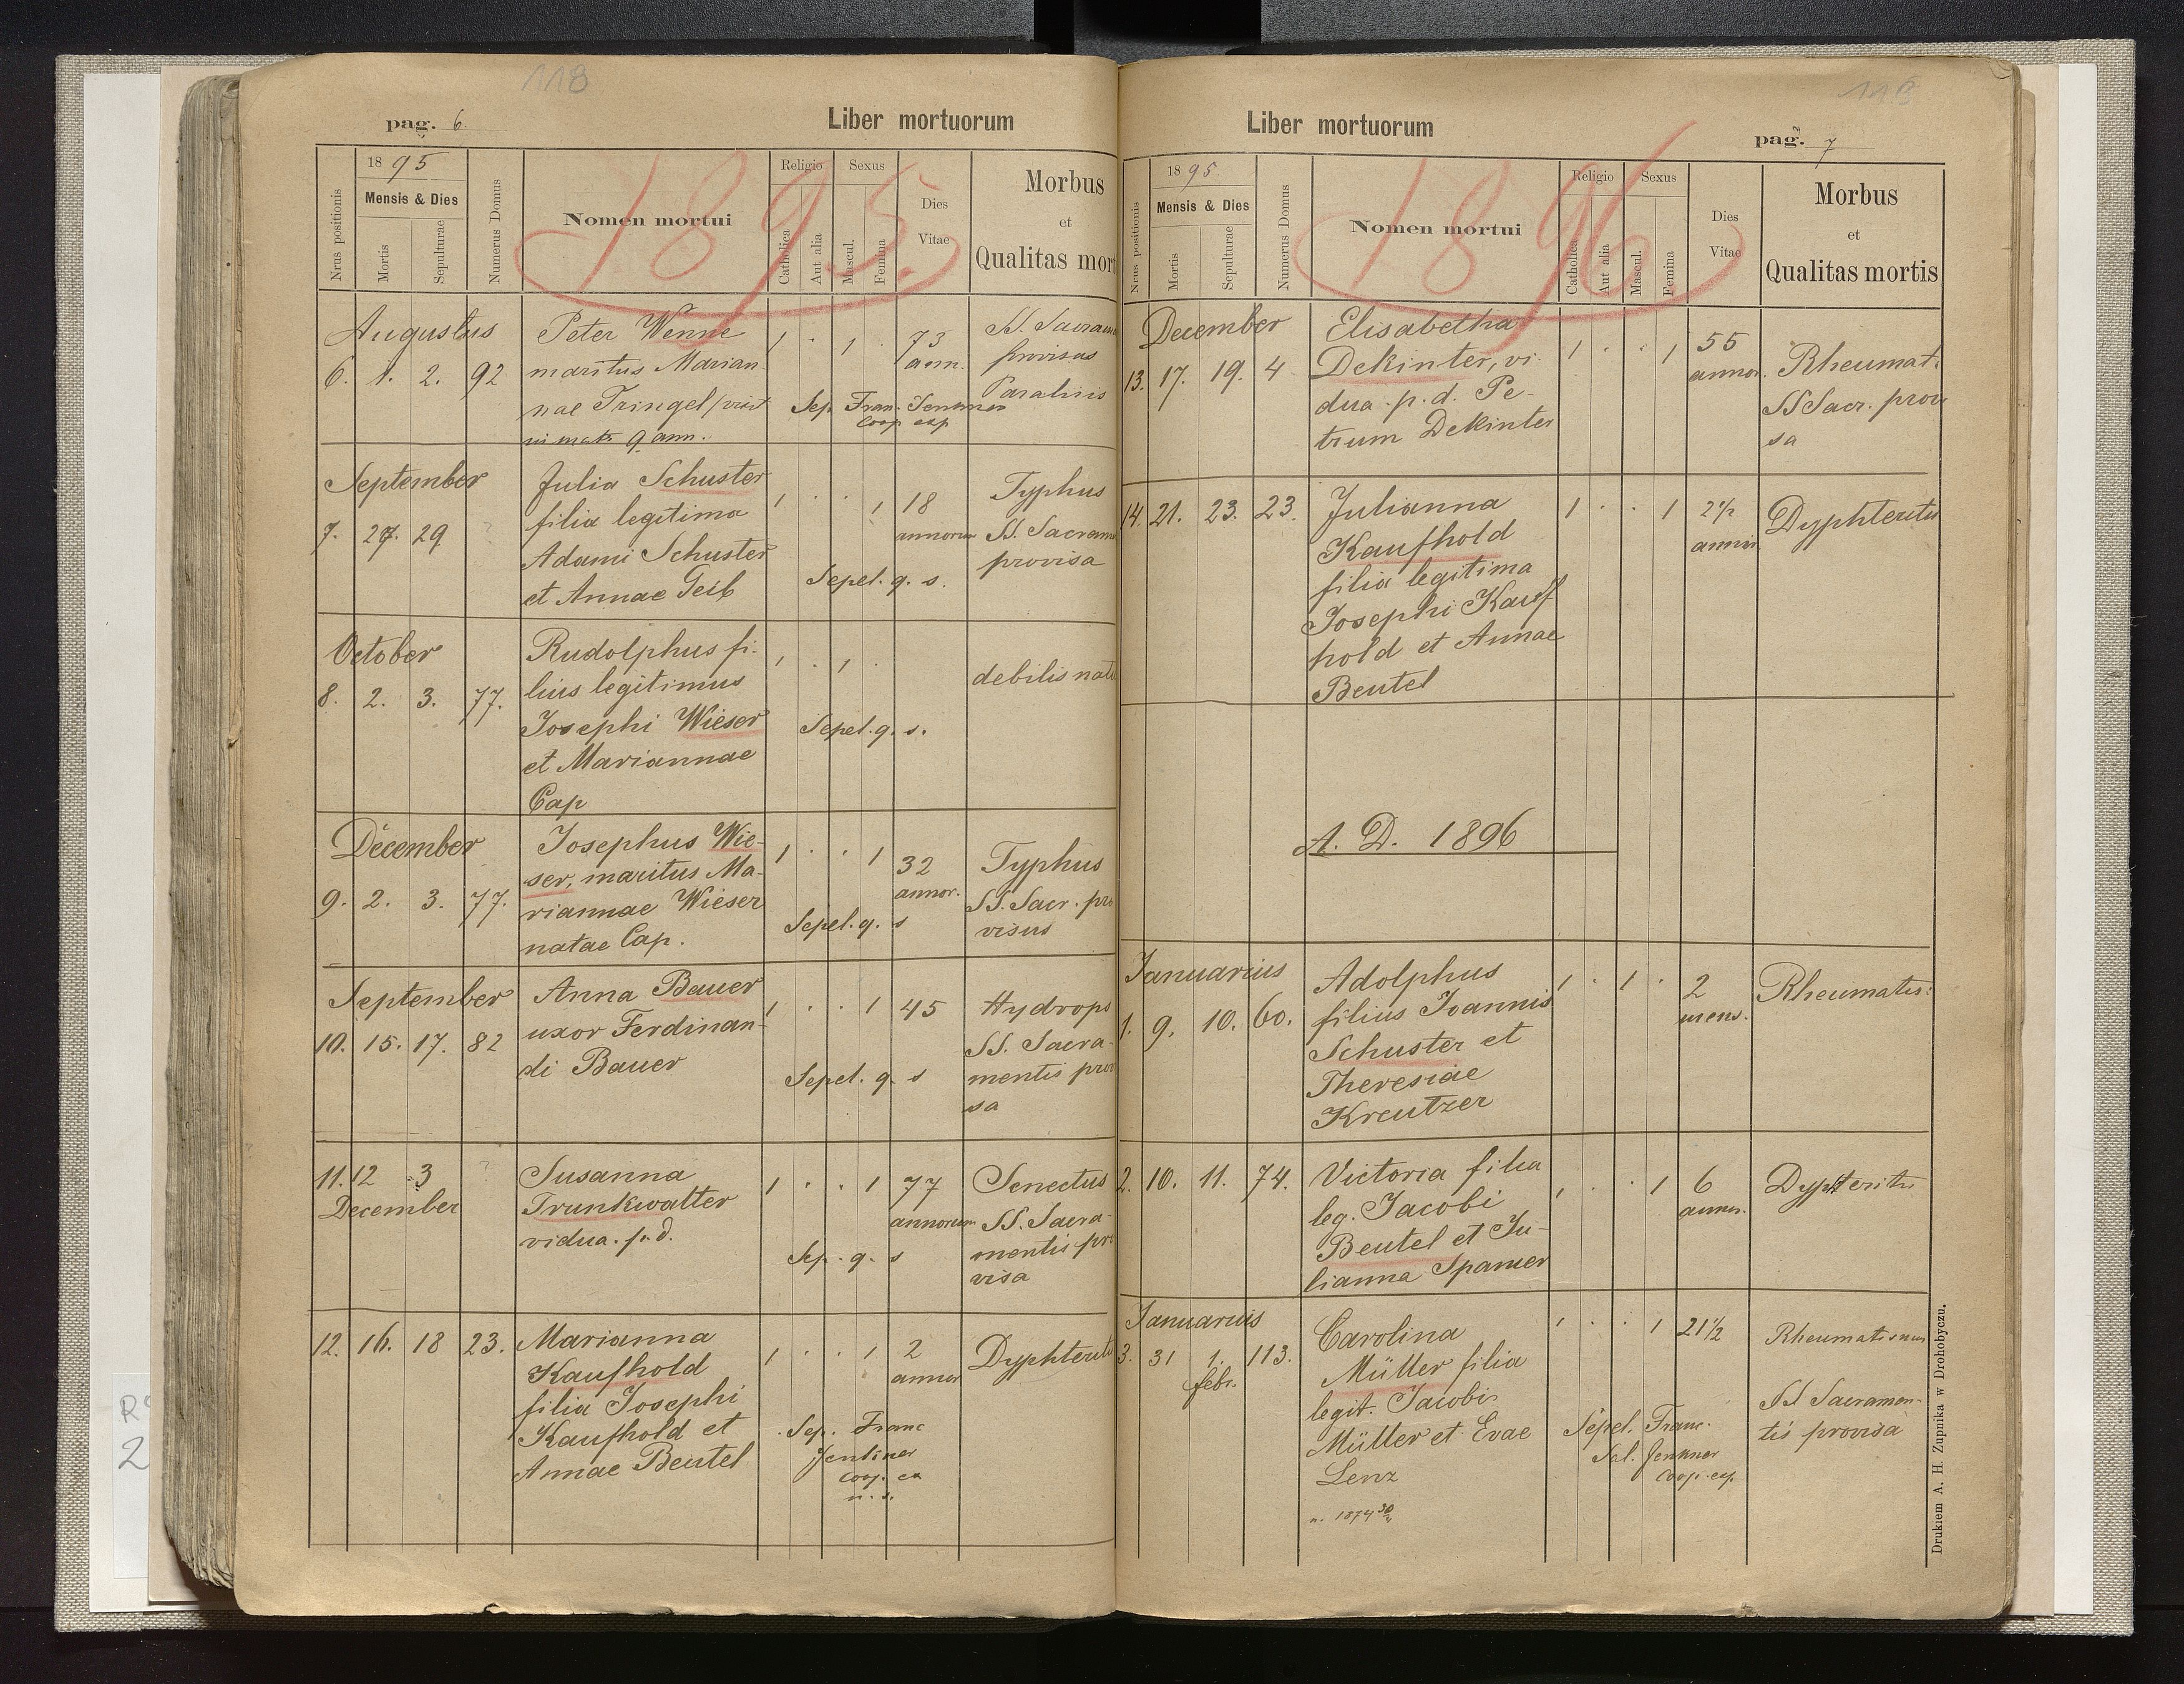 118
pag. 6.
Liber mortuorum
1895.
Nrus positionis
1895
Mensis & Dies
Mortis
Sepulturae
Numerus Domus
Nomen mortui
Religio
Catholica
Aut alia
Sexus
Mascul.
Femina
Dies
Vitae
Morbus
et
Qualitas mort
Augustus
6. 1. 2. 92
Peter Wenne
maritus Marian
nae Tringel
9 ann.
1 . 1 .
73
ann.
Sep. Fran. Jenkner
Coop exp
SS. Sacram
provisus
Paralisis
September
7. 27. 29 ?
Julia Schuster
filia legitima
Adami Schuster
et Annae Geib
1 . . 1
18
annorum
Sepel. q. s.
Typhus
SS. Sacram
provisa
October
8. 2. 3. 77.
Rudolphus fi-
lius legitimus
Josephi Wieser
et Mariannae
Cap
1 . 1 .
Sepel. q. s.
debilis nat
December
9. 2. 3. 77.
Josephus Wie-
ser, maritus Ma-
riannae Wieser
natae Cap.
1 . . 1
32
annor.
Sepel. q. s
Typhus
SS. Sacr. pro
visus
September
10. 15. 17. 82
Anna Bauer
uxor Ferdinan-
di Bauer
1 . . 1 45
Sepel. q. s
Hydrops
SS. Sacra-
mentis provi
sa
11. 12 3 ?
December
Susanna
Trunkwalter
vidua. p. d.
1 . . 1 77
annorum
Sep. q. s
Senectus
SS. Sacra-
mentis pro
visa
12. 16. 18 23.
Marianna
Kaufhold
filia Josephi
Kaufhold et
Annae Beutel
1 . . 1 2
annor
Sep. Franc
Jenkner
Coop. ex
Dyphterit
119
Liber mortuorum
pag. 7
1896
Nrus positionis
1895
Mensis & Dies
Mortis
Sepulturae
Numerus Domus
Nomen mortui
Religio
Catholica
Aut alia
Sexus
Mascul.
Femina
Dies
Vitae
Morbus
et
Qualitas mortis
December
13. 17. 19. 4
Elisabetha
Dekinter, vi-
dua p. d. Pe-
trum Dekinter
1 . . 1
55
annor.
Rheumat.
SS Sacr. provi
sa
14. 21. 23. 23.
Julianna
Kaufhold
filia legitima
Josephi Kauf
hold et Annae
Beutel
1 . . 1 2½
annor
Dyphteritis
A. D. 1896
Januarius
1. 9. 10. 60.
Adolphus
filius Joannis
Schuster et
Theresiae
Kreutzer
1 . 1 . 2
mens.
Rheumatis:
2. 10. 11. 74.
Victoria filia
leg. Jacobi
Beutel et Ju-
lianna Spamer
1 . . 1 6
annor.
Dypteritis
Januarius
3. 31 1. 113.
febr.
Carolina
Müller filia
legit. Jacobi
Müller et Evae
Lenz
n. 1874
1 . . 1 21½
Sepel. Franc.
Sal. Jenkner
Coop. exp.
Rheumatismus
SS Sacramen-
tis provisa
Drukiem A. H. Zupnika w Drohobyczu.